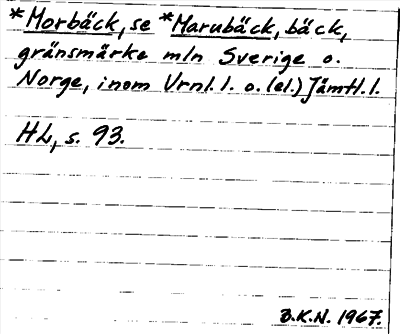 *Morbäck, se *Marubäck, bäck,
gränsmärke mln Sverige o.
Norge, inom Vrnl. l. o. (el.) Jämtl. l.
HL, s. 93.
B.K.N. 1967.